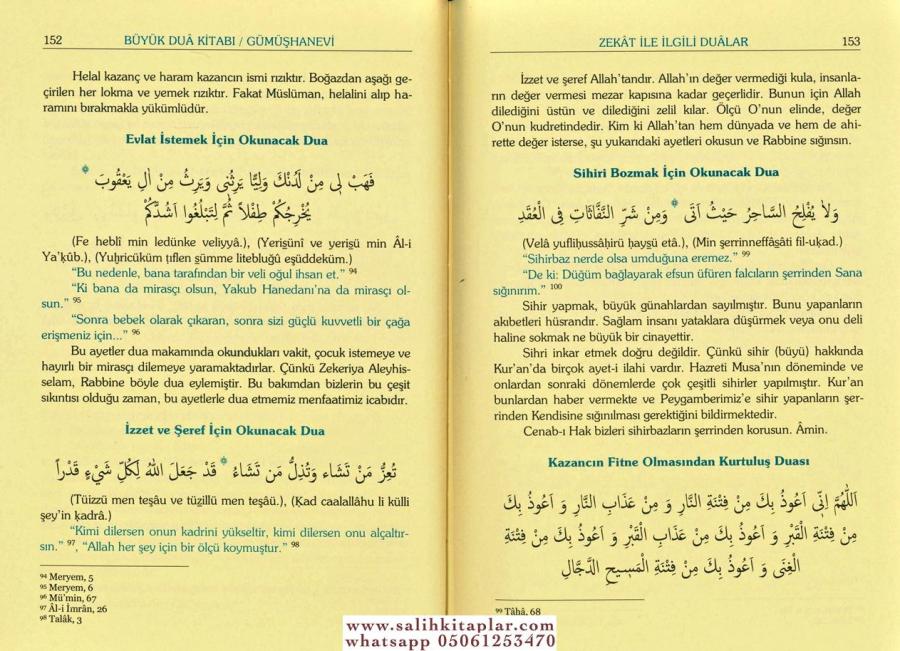 152
BÜYÜK DUÂ KİTABI / GÜMÜŞHANEVİ
Helal kazanç ve haram kazancın ismi rızıktır. Boğazdan aşağı ge-
çirilen her lokma ve yemek rızıktır. Fakat Müslüman, helalini alıp ha-
ramını bırakmakla yükümlüdür.
Evlat İstemek İçin Okunacak Dua
فَهَبْ لِى مِنْ لَدُنْكَ وَلِيًّا يَرِثُنِى وَيَرِثُ مِنْ اٰلِ يَعْقُوبَ *
يُخْرِجُكُمْ طِفْلاً ثُمَّ لِتَبْلُغُوا اَشُدَّكُمْ
(Fe heblî min ledünke veliyyâ.), (Yerişünî ve yerişü min Âl-i
Ya'kûb.), (Yuḫricüküm ṭıflen sümme litebluğû eşüddeküm.)
“Bu nedenle, bana tarafından bir veli oğul ihsan et.” 94
“Ki bana da mirasçı olsun, Yakub Hanedanı'na da mirasçı ol-
sun.” 95
“Sonra bebek olarak çıkaran, sonra sizi güçlü kuvvetli bir çağa
erişmeniz için...” 96
Bu ayetler dua makamında okundukları vakit, çocuk istemeye ve
hayırlı bir mirasçı dilemeye yaramaktadırlar. Çünkü Zekeriya Aleyhis-
selam, Rabbine böyle dua eylemiştir. Bu bakımdan bizlerin bu çeşit
sıkıntısı olduğu zaman, bu ayetlerle dua etmemiz menfaatimiz icabıdır.
İzzet ve Şeref İçin Okunacak Dua
تُعِزُّ مَنْ تَشَاء وَتُذِلُّ مَن تَشَاءُ * قَدْ جَعَلَ اللّٰهُ لِكُلِّ شَيْءٍ قَدْراً
(Tüizzü men teşâu ve tüzillü men teşâü.), (Ḳad caalallâhu li külli
şey'in ḳadrâ.)
“Kimi dilersen onun kadrini yükseltir, kimi dilersen onu alçaltır-
sın.” 97, “Allah her şey için bir ölçü koymuştur.” 98
94 Meryem, 5
95 Meryem, 6
96 Mü'min, 67
97 Âl-i İmrân, 26
98 Talâk, 3
ZEKÂT İLE İLGİLİ DUÂLAR
153
İzzet ve şeref Allah'tandır. Allah'ın değer vermediği kula, insanla-
rın değer vermesi mezar kapısına kadar geçerlidir. Bunun için Allah
dilediğini üstün ve dilediğini zelil kılar. Ölçü O'nun elinde, değer
O'nun kudretindedir. Kim ki Allah'tan hem dünyada ve hem de ahi-
rette değer isterse, şu yukarıdaki ayetleri okusun ve Rabbine sığınsın.
Sihiri Bozmak İçin Okunacak Dua
وَلاَ يُفْلِحُ السَّاحِرُ حَيْثُ اَتَى * وَمِنْ شَرِّ النَّفَّاثَاتِ فِى الْعُقَدِ
(Velâ yufliḥussâḥirü ḥaysü etâ.), (Min şerrinneffâşâti fil-uḳad.)
“Sihirbaz nerde olsa umduğuna eremez.” 99
“De ki: Düğüm bağlayarak efsun üfüren falcıların şerrinden Sana
sığınırım.” 100
Sihir yapmak, büyük günahlardan sayılmıştır. Bunu yapanların
akıbetleri hüsrandır. Sağlam insanı yataklara düşürmek veya onu deli
haline sokmak ne büyük bir cinayettir.
Sihri inkar etmek doğru değildir. Çünkü sihir (büyü) hakkında
Kur'an'da birçok ayet-i ilahi vardır. Hazreti Musa'nın döneminde ve
onlardan sonraki dönemlerde çok çeşitli sihirler yapılmıştır. Kur'an
bunlardan haber vermekte ve Peygamberimiz'e sihir yapanların şer-
rinden Kendisine sığınılması gerektiğini bildirmektedir.
Cenab-ı Hak bizleri sihirbazların şerrinden korusun. Âmin.
Kazancın Fitne Olmasından Kurtuluş Duası
اَللّٰهُمَّ اِنِّى اَعُوذُ بِكَ مِنْ فِتْنَةِ النَّارِ وَ مِنْ عَذَابِ النَّارِ وَ اَعُوذُ بِكَ
مِنْ فِتْنَةِ الْقَبْرِ وَ اَعُوذُ بِكَ مِنْ عَذَابِ الْقَبْرِ وَ اَعُوذُ بِكَ مِنْ فِتْنَةِ
الْغِنَى وَ اَعُوذُ بِكَ مِنْ فِتْنَةِ الْمَسِيحِ الدَّجَّالِ
99 Tâhâ, 68
www.salihkitaplar.com
whatsapp 05061253470